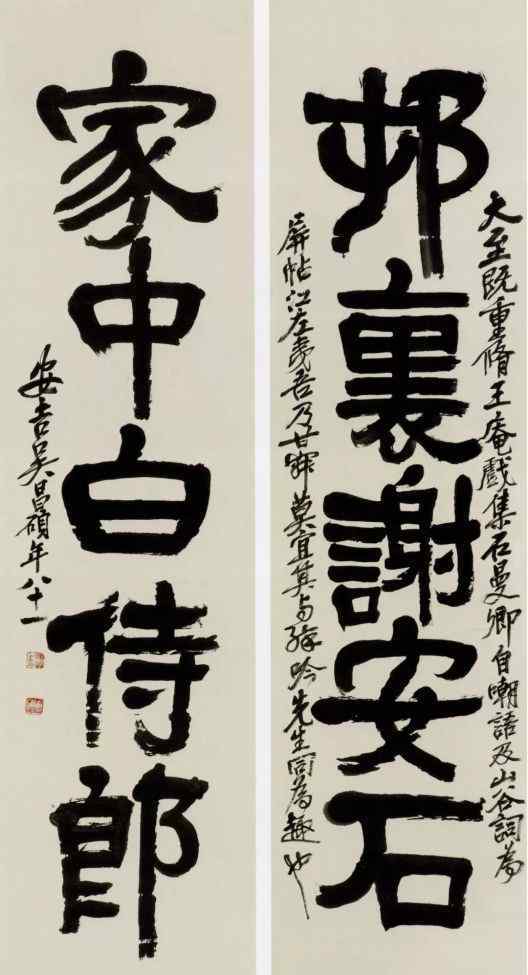 邨裏謝安石
大至既重脩王庵戲集石曼卿自嘲語及山谷詞為
屏帖江左夷吾乃甘寂莫宜其与孫吟先生同為趣也
家中白侍郎
安吉吴昌碩年八十一